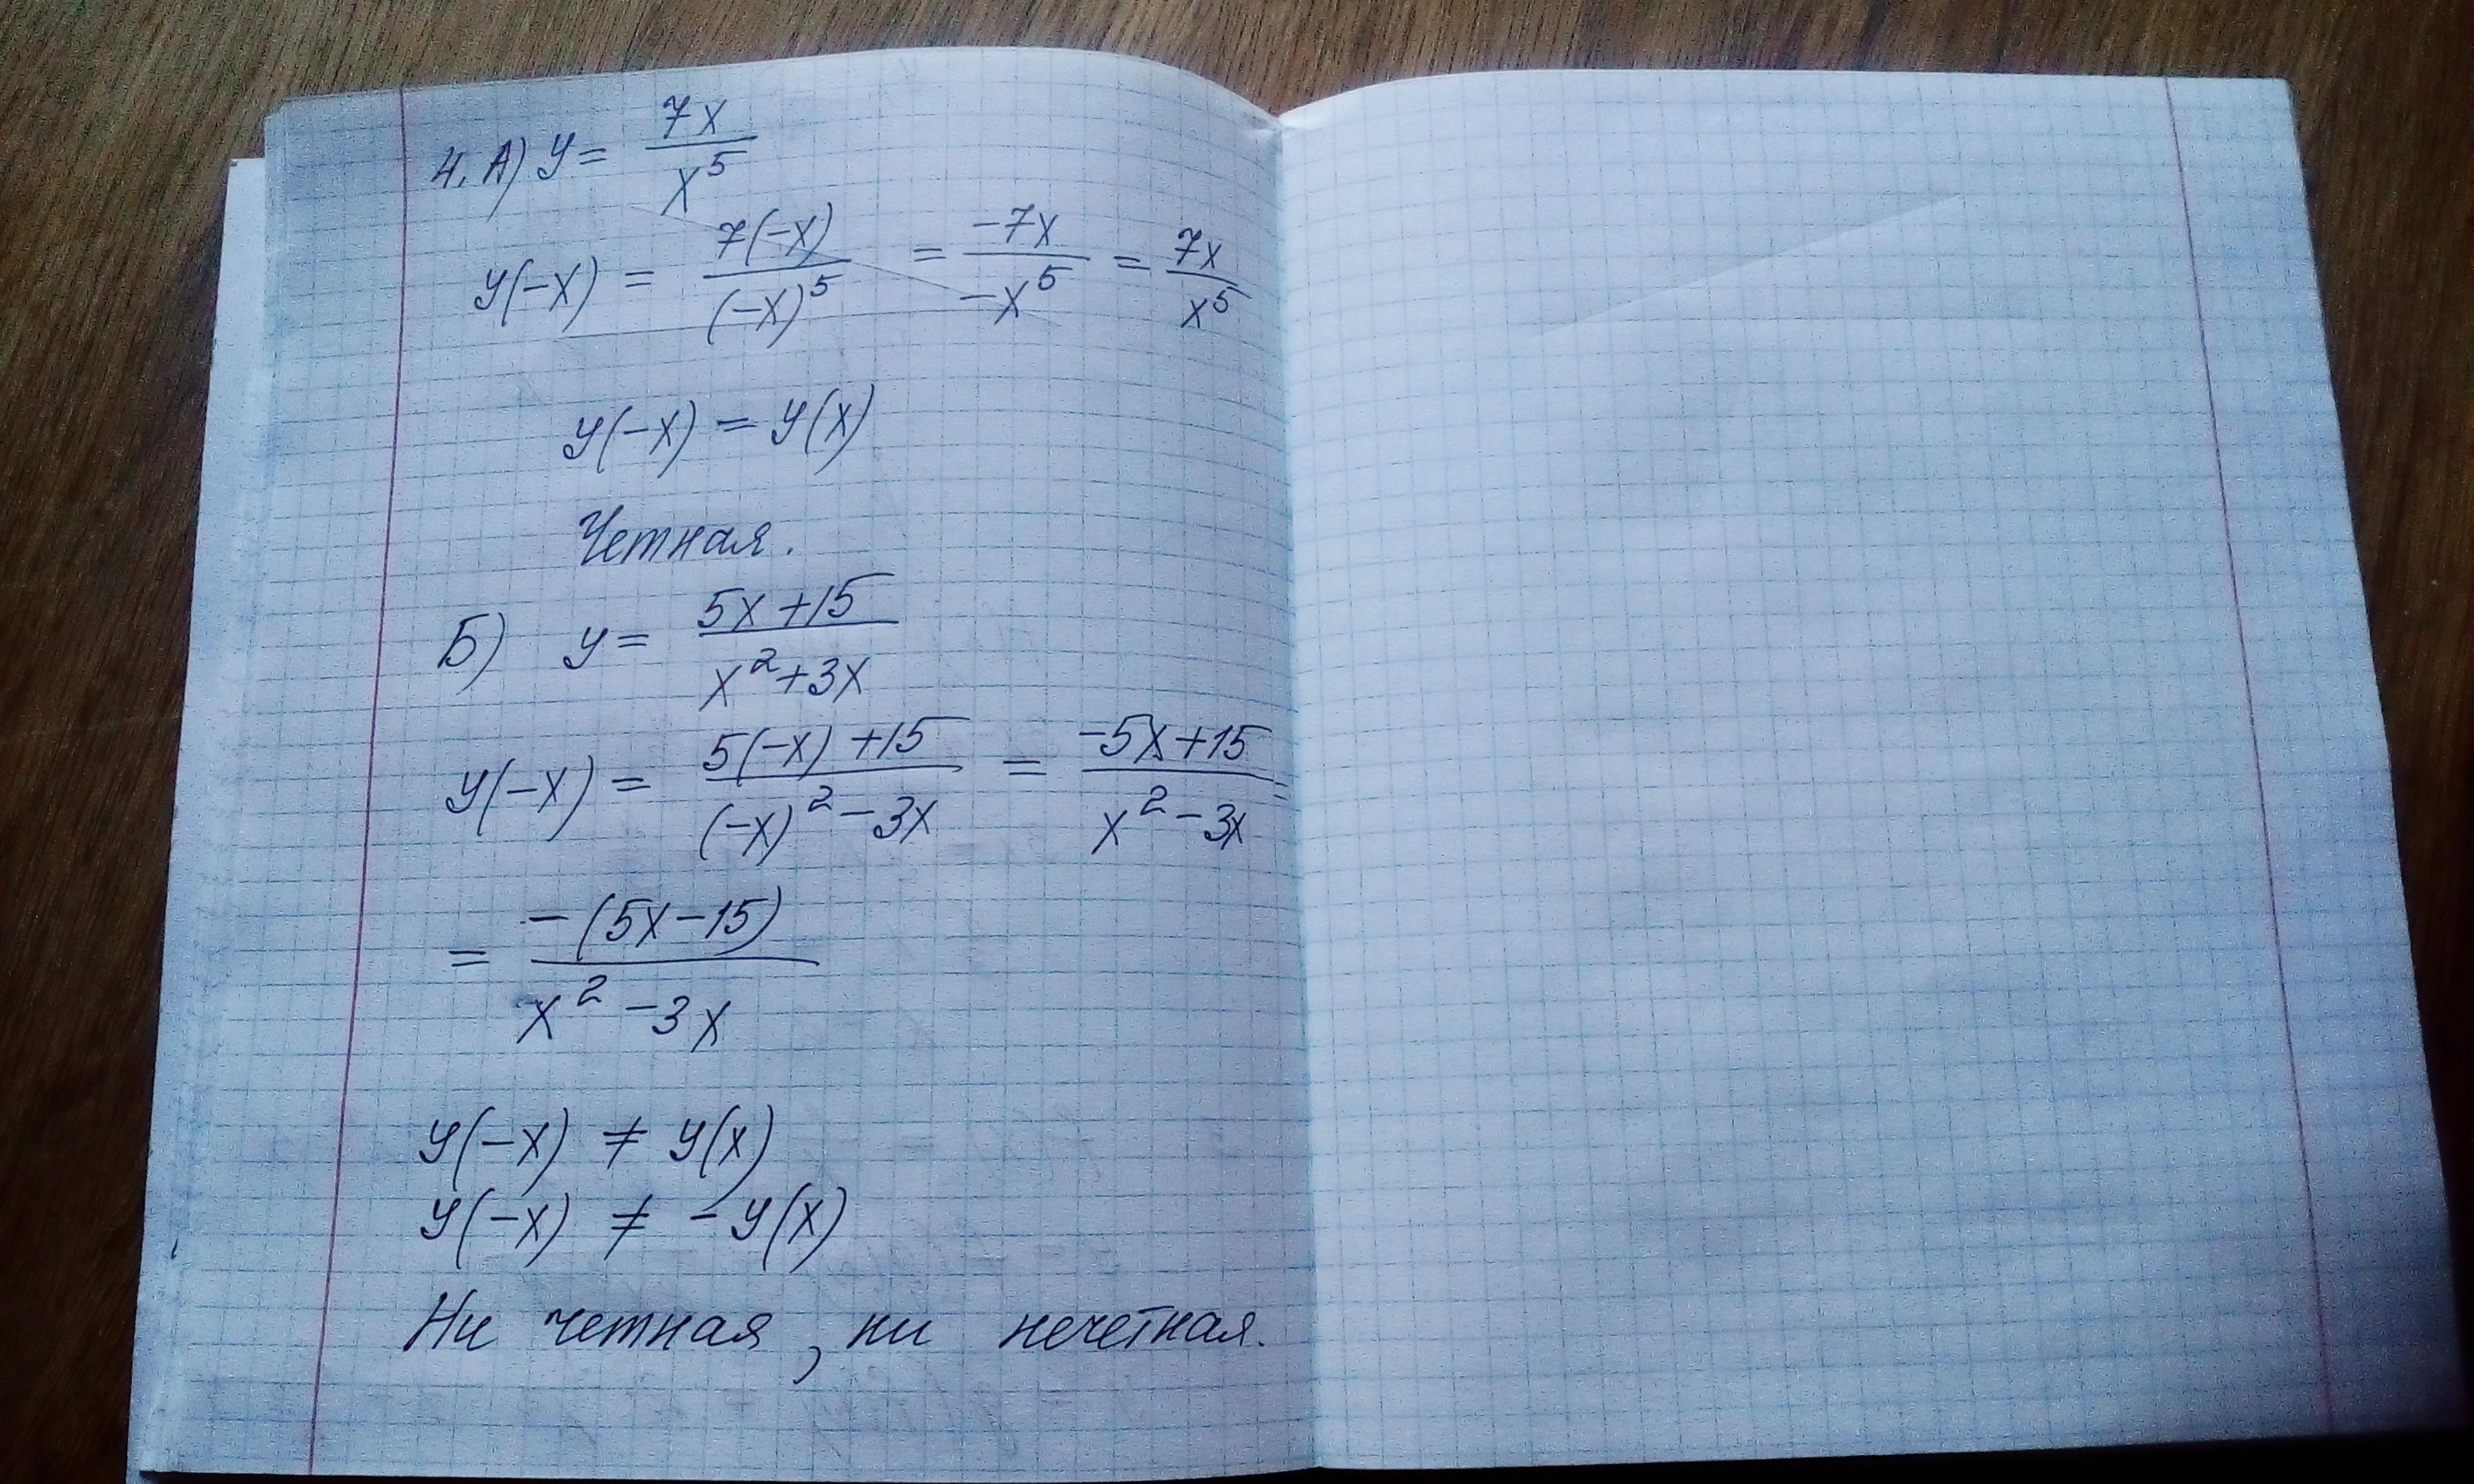 4. А) y = 7x / x⁵
y(-x) = 7(-x) / (-x)⁵ = -7x / -x⁵ = 7x / x⁵
y(-x) = y(x)
Четная.
Б) y = 5x+15 / x²+3x
y(-x) = 5(-x)+15 / (-x)²-3x = -5x+15 / x²-3x =
= -(5x-15) / x²-3x
y(-x) ≠ y(x)
y(-x) ≠ -y(x)
Ни четная, ни нечетная.